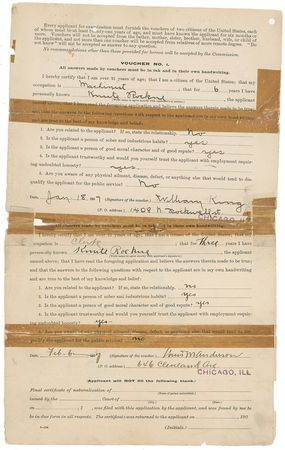 Every applicant for examination must furnish the vouchers of two citizens of the United States, each
of whom must be at least twenty-one years of age, and must have known the applicant for six months or
more. Vouchers will not be accepted from the father, mother, sister, brother, husband, wife, or child of
the applicant, and not more than one voucher will be accepted from relatives of more remote degree. "Do
not know" will not be accepted as answer to any question.
No recommendations other than those provided for herein will be accepted by the Commission.
VOUCHER NO. 1.
All answers made by vouchers must be in ink and in their own handwriting.
I hereby certify that I am over 21 years of age; that I am a citizen of the United States; that my
occupation is Machinist; that for 6 years I have
personally known Knute Rockne, the applicant
and that the answers to the following questions with respect to the applicant are in my own handwriting
and are true to the best of my knowledge and belief.
1. Are you related to the applicant? If so, state the relationship. No
2. Is the applicant a person of sober and industrious habits? yes
3. Is the applicant a person of good moral character and of good repute? yes
4. Is the applicant trustworthy and would you yourself trust the applicant with employment requir-
ing undoubted honesty? yes
5. Are you aware of any physical ailment, disease, defect, or anything else that would tend to dis-
qualify the applicant for the public service? No
Date, Jan 18, 1907 (Signature of the voucher)
(P. O. address) 1409 N
CHICAGO
All answers made by vouchers must be in ink and in their own handwriting.
I hereby certify that I am over 21 years of age; that I am a citizen of the United States; that my
occupation is Clerk; that for three years I have
personally known Knute Rockne, the applicant
named above; that I have read the foregoing application and believe the answers therein made to be true;
and that the answers to the following questions with respect to the applicant are in my own handwriting
and are true to the best of my knowledge and belief.
1. Are you related to the applicant? If so, state the relationship. no
2. Is the applicant a person of sober and industrious habits? yes
3. Is the applicant a person of good moral character and of good repute? yes
4. Is the applicant trustworthy and would you yourself trust the applicant with employment requir-
ing undoubted honesty? yes
5. Are you aware of any physical ailment, disease, defect, or anything else that would tend to dis-
qualify the applicant for the public service? no
Date, Feb. 6, 1907 (Signature of the voucher) Anderson
(P. O. address) 646 Cleveland Ave
CHICAGO, ILL
(Applicant will NOT fill the following blank.)
Final certificate of naturalization of
issued by the Court of
on , 1 , was filed with this application by the applicant, and was found by me to
be in due form in all respects. The certificate was returned to the applicant on , 190
(Initials.)